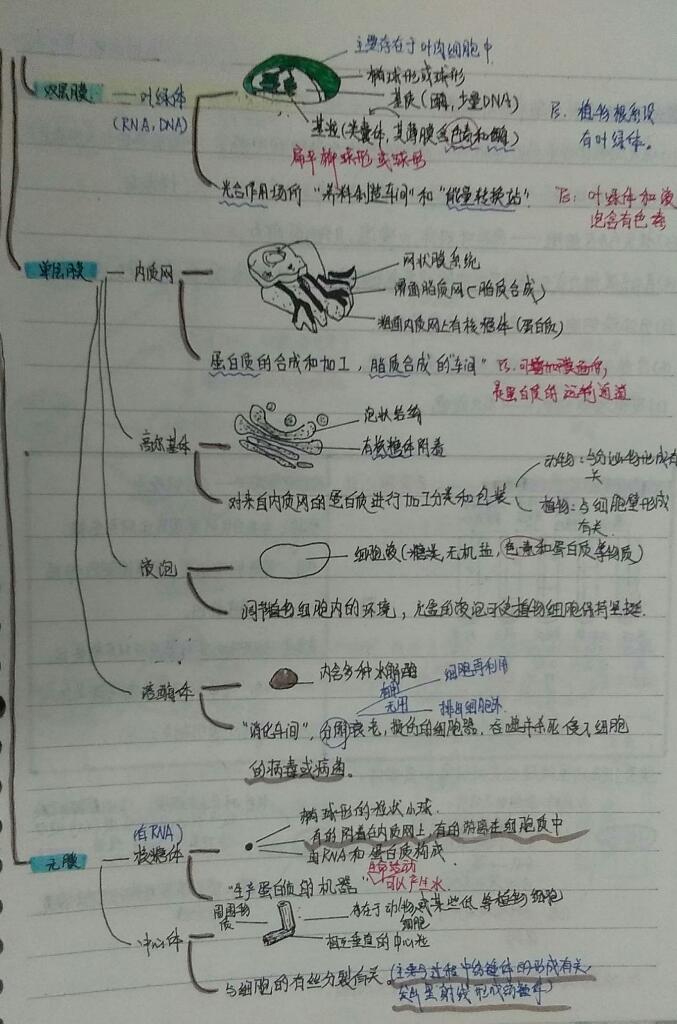 主要存在于叶肉细胞中
双层膜 — 叶绿体
(RNA, DNA)
椭球形或球形
基质(酶,少量DNA)
基粒(类囊体,其薄膜含色素和酶)
扁平椭球形或球形
PS: 植物根系没
有叶绿体。
光合作用场所 "养料制造车间"和"能量转换站"
PS: 叶绿体和液
泡含有色素
单层膜 — 内质网
网状膜系统
滑面脂质网(脂质合成)
粗面内质网上有核糖体(蛋白质)
蛋白质的合成和加工,脂质合成的"车间"
PS:可增加膜面积,
是蛋白质的运输通道
高尔基体
泡状结构
有核糖体附着
对来自内质网的蛋白质进行加工分类和包装
动物:与分泌物形成有
关
植物:与细胞壁形成
有关.
液泡
细胞液(糖类,无机盐,色素和蛋白质等物质)
调节植物细胞内的环境,充盈的液泡可使植物细胞保持坚挺.
溶酶体
内含多种水解酶
有用 细胞再利用
无用 排出细胞外.
"消化车间",分解衰老,损伤的细胞器,吞噬并杀死侵入细胞
的病毒或病菌。
无膜
(有RNA)
核糖体
椭球形的粒状小球.
有的附着在内质网上,有的游离在细胞质中
由RNA和蛋白质构成
"生产蛋白质的机器"
可以产生水.
中心体
周围物
质
存在于动物或某些低等植物细胞
细胞
相互垂直的中心粒
与细胞的有丝分裂有关。(主要与过程中纺锤体的形成有关,
发出星射线形成纺锤体)